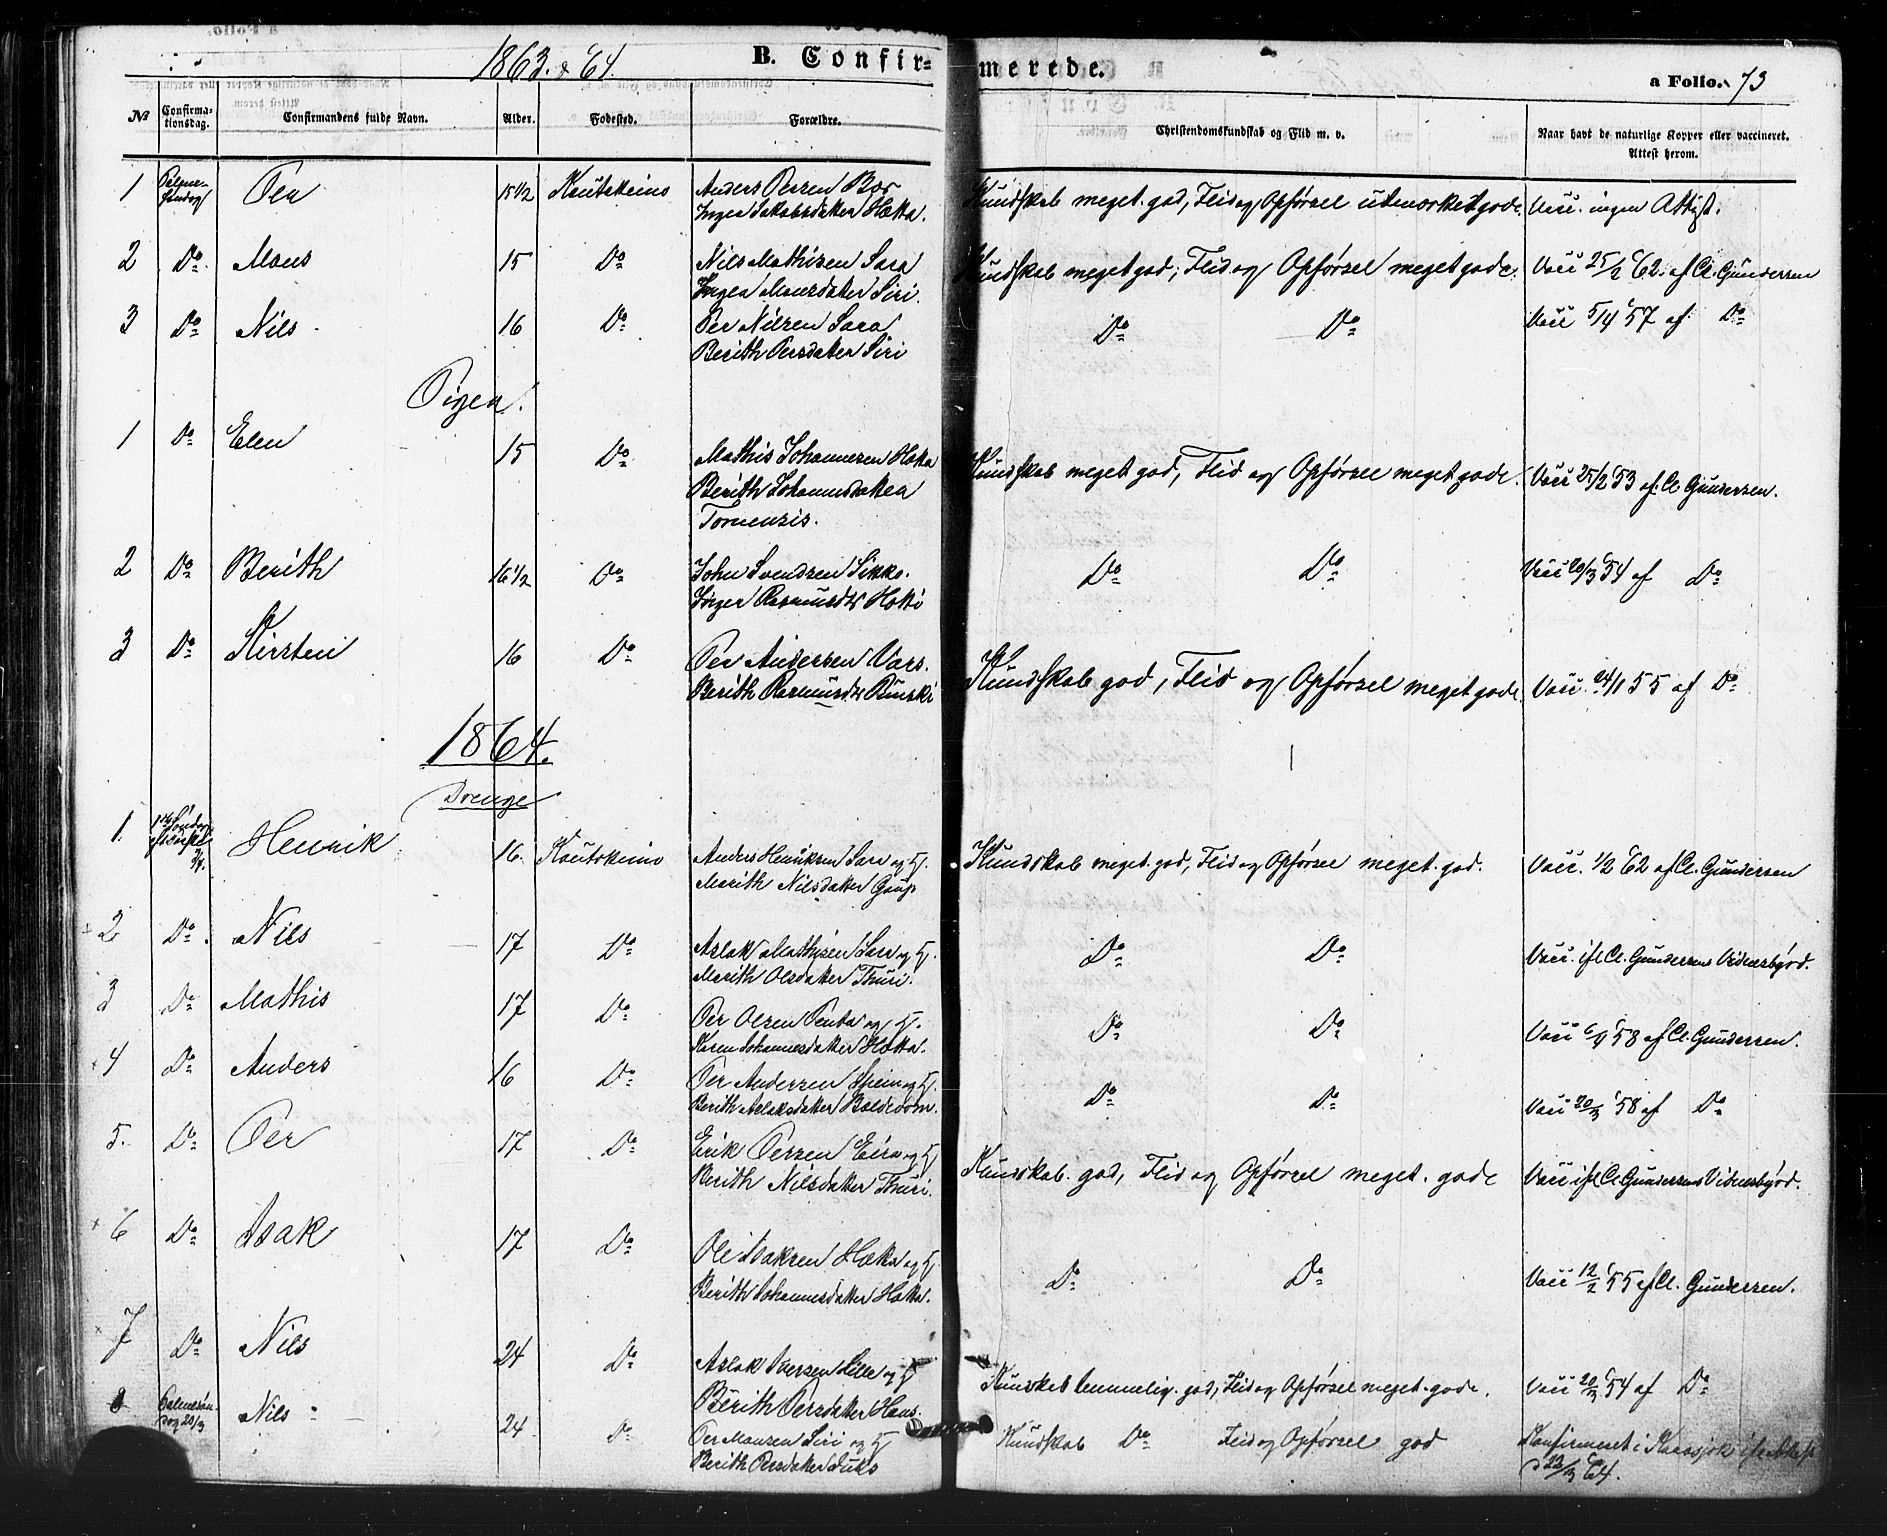 1863 & 64. B. Confirmerede. a Folio. 73
№ Confirmationsdag. Confirmandens fulde Navn. Alder. Fødested. Forældre. Christendomskundskab og Flid m. v. Naar havt de naturlige Kopper eller vaccineret. Attest herom.
1 Per 15 1/2 Kautokeino Anders Persen Kundskab meget god, Flid og Opførsel udmærket gode. Vacc. ingen Attest.
Inger Jakobsdatter Hætta.
2 Do Mons 15 Do Nils Mathisen Sara Kundskab meget god, Flid og Opførsel meget gode. Vacc 25/2 62 af Cl. Gundersen
Inger Monsdatter Siri.
3 Do Nils 16 Do Per Nilsen Sara Do Do Vacc 5/4 57 af Do
Berith Persdatter Siri
Piger.
1 Do Elen 15 Do Mathis Johannesen Hætta Kundskab meget god, Flid og Opførsel meget gode. Vacc 25/2 53 af Cl. Gundersen.
Berith Johannesdatter
Tornensis.
2 Do Berith 16 1/2 Do John Svendsen Sikko. Do Do Vacc 20/3 54 af Do
Inger Rasmusdtr
3 Do Kirsten 16 Do Per Andersen Vars. Kundskab god, Flid og Opførsel meget gode. Vacc. 24/1 55 af Do
Berith Rasmusdtr
1864.
Drenge
1. Henrik 16. Kautokeino Anders Henriksen Sara og H. Kundskab meget god, Flid og Opførsel meget god. Vacc. 1/2 62 af Cl. Gundersen
Marith Nilsdatter Gaup.
2 Do Nils 17 Do Aslak Mathisen Sara og H. Do Do Vacc. ifl Cl. Gundersens Vidnesbyrd.
Marith Olsdatter Thuri.
3 Do Mathis 17 Do Per Olsen Pentha og H. Do Do Vacc 58 af Cl. Gundersen.
Karen Johannesdatter Hætta.
4 Do Anders 16 Do Per Andersen Spein og H. Do Do Vacc 20/3 58 af Do
Berith Aslaksdatter
5. Do Per 17 Do Erik Persen Eira og H Kundskab god, Flid og Opførsel meget gode Vacc ifl Cl. Gundersens Vidnesbyrd.
Berith Nilsdatter Thuri.
6 Do Isak 17 Do Ole Isaksen Hætta og H. Do Do Vacc 12/2 55 af Cl. Gundersen.
Berith Johannesdatter Hætta.
7 Do Nils 24 Do Aslak Iversen Lille og H Kundskab temmelig god, Flid og Opførsel meget gode. Vacc 20/3 54 af Do
Berith Persdatter
8 Palmesøndag 20/3 Nils 24 Do Per Monsen Siri og H Kundskab Do Flid og Opførsel god Konfirmeret i Karasjok ifl Attest
Berith Persdatter 22/3 64.